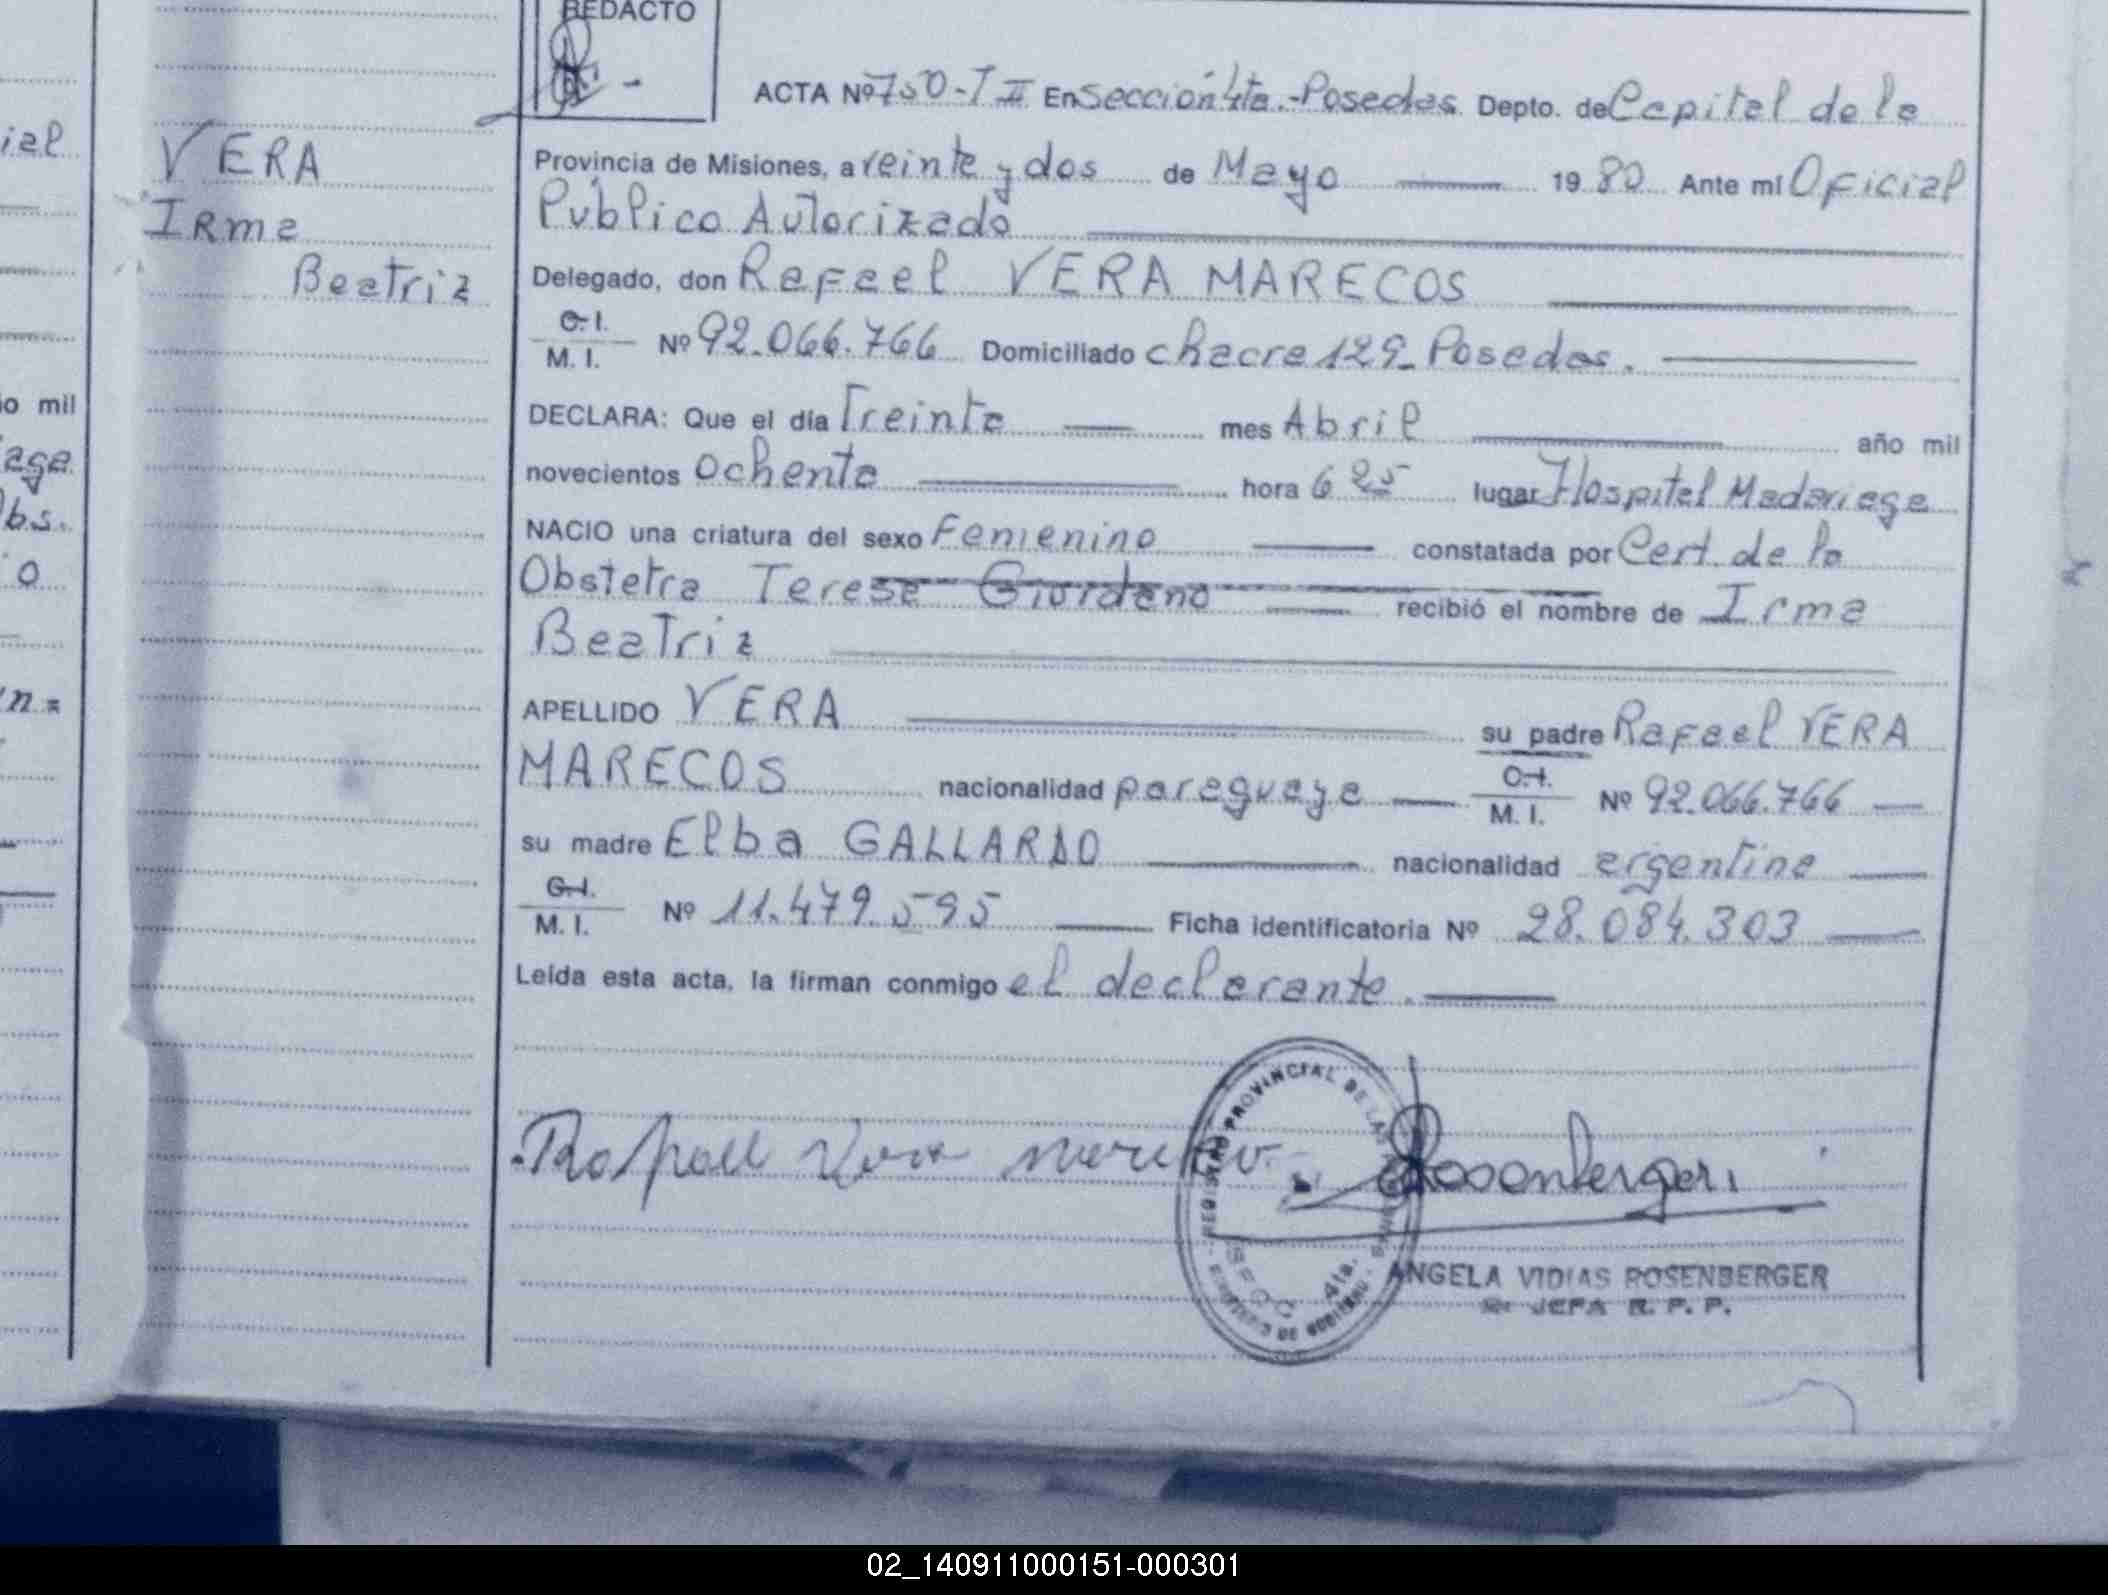 REDACTO
ACTA Nº 750-T II En Sección 4ta.-Posadas. Depto. de Capital de la
Provincia de Misiones, a veinte y dos de Mayo 19 80 Ante mí Oficial
Público Autorizado
Delegado, don Rafael VERA MARECOS
C.I.
M. I. Nº 92.066.766 Domiciliado chacra 129- Posadas.
DECLARA: Que el día Treinta mes Abril año mil
novecientos ochenta hora 6 25 lugar Hospital Madariaga
NACIO una criatura del sexo Femenino constatada por Cert. de la
Obstetra Teresa Giordano recibió el nombre de Irma
Beatriz
APELLIDO VERA su padre Rafael VERA
MARECOS nacionalidad paraguaya C.I.
M. I. Nº 92.066.766
su madre Elba GALLARDO nacionalidad argentina
C.I.
M. I. Nº 11.479.595 Ficha identificatoria Nº 28.084.303
Leída esta acta, la firman conmigo el declarante.
Rafael Vera
Rosenberger
REGISTRO PROVINCIAL DE LAS PERSONAS
SECC. 4ta.
MINISTERIO DE GOBIERNO
ANGELA VIDIAS ROSENBERGER
JEFA R. P. P.
VERA
Irma
Beatriz
ial
io mil
iaga
Obs.
o
02_140911000151-000301